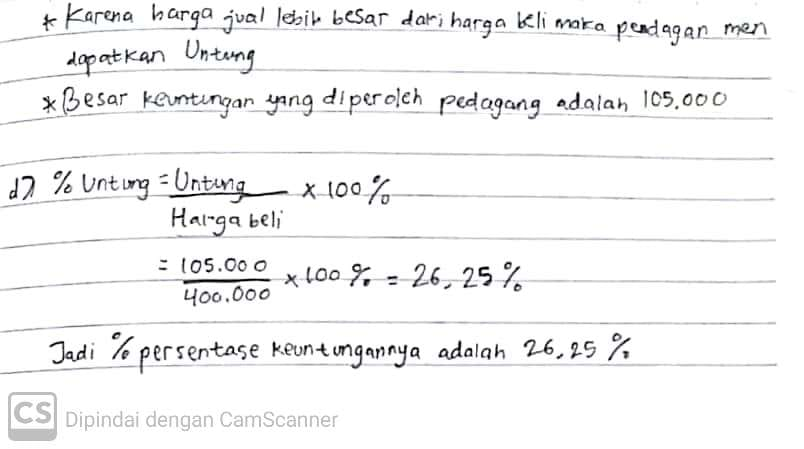 * Karena harga jual lebih besar dari harga beli maka pendagan men
dapatkan Untung
* Besar keuntungan yang diperoleh pedagang adalah 105.000
d) % Untung = Untung x 100 %
Harga beli
= 105.000 x 100 % = 26,25 %
400.000
Jadi % persentase keuntungannya adalah 26,25 %
CS Dipindai dengan CamScanner